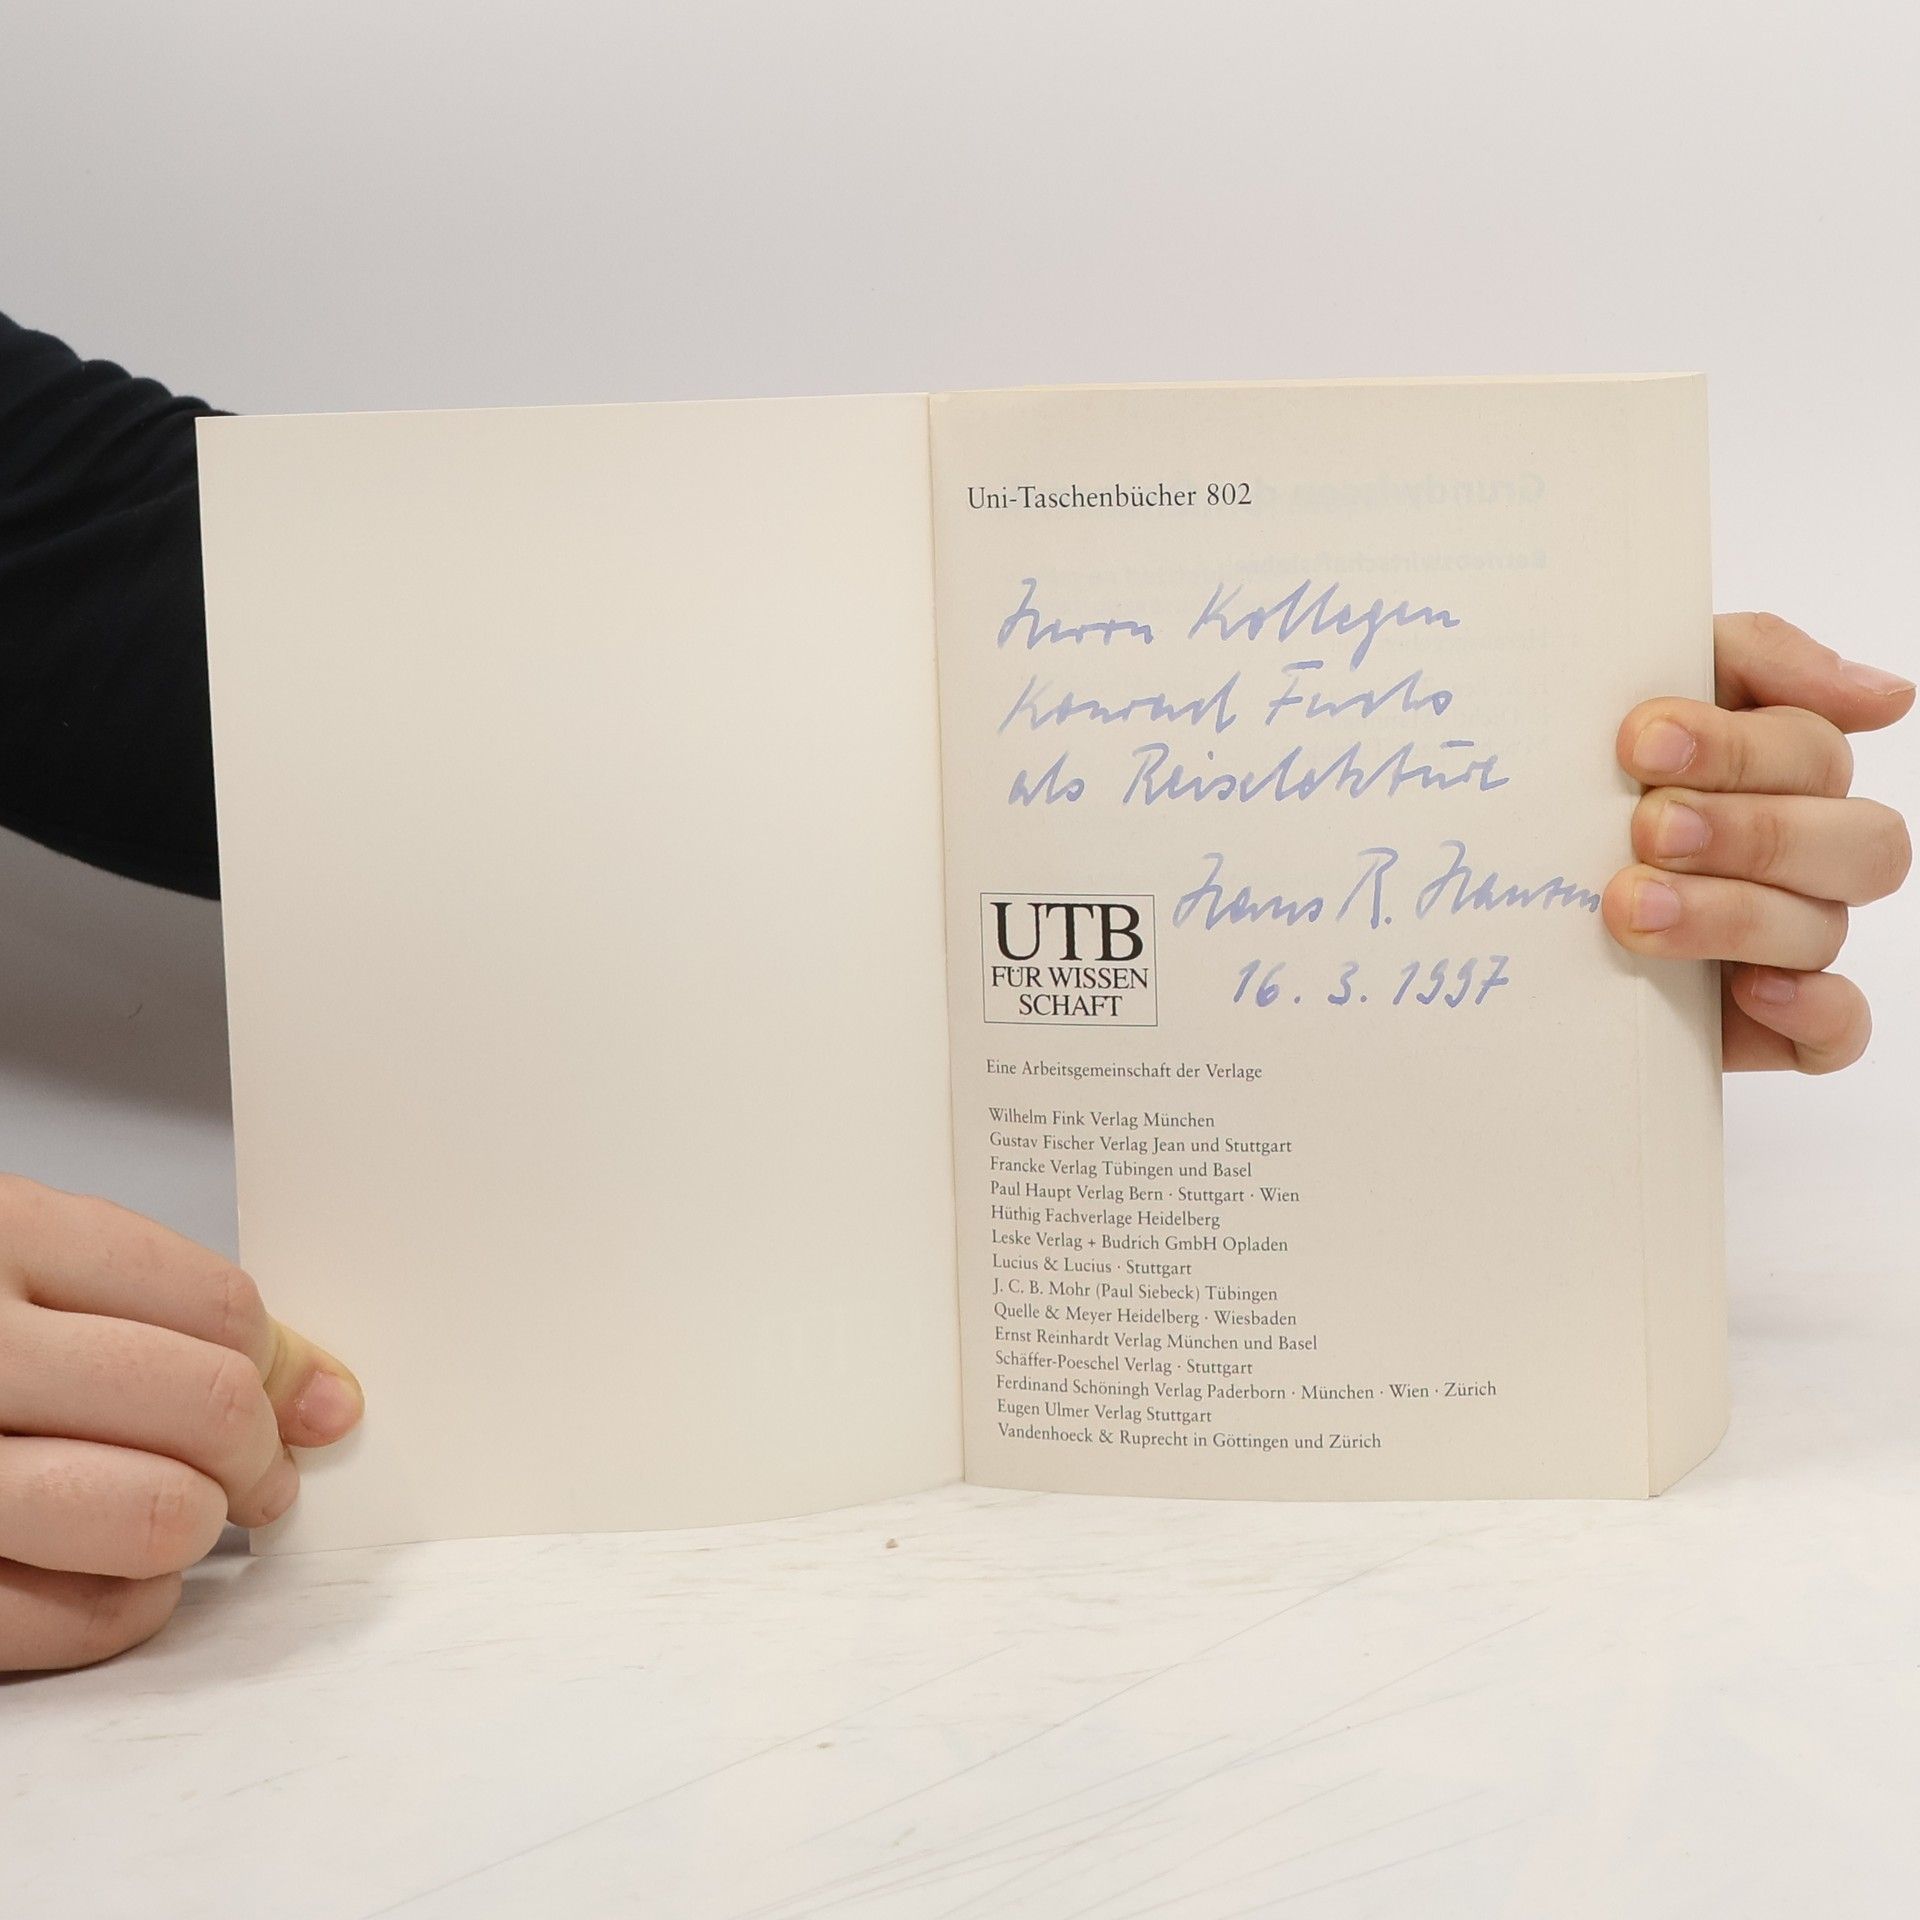 Uni-Taschenbücher 802
Herrn Kollegen
Konrad Fuchs
als Reiselektüre
Hans R. Hansen
16. 3. 1997
UTB
FÜR WISSEN
SCHAFT
Eine Arbeitsgemeinschaft der Verlage
Wilhelm Fink Verlag München
Gustav Fischer Verlag Jean und Stuttgart
Francke Verlag Tübingen und Basel
Paul Haupt Verlag Bern · Stuttgart · Wien
Hüthig Fachverlage Heidelberg
Leske Verlag + Budrich GmbH Opladen
Lucius & Lucius · Stuttgart
J. C. B. Mohr (Paul Siebeck) Tübingen
Quelle & Meyer Heidelberg · Wiesbaden
Ernst Reinhardt Verlag München und Basel
Schäffer-Poeschel Verlag · Stuttgart
Ferdinand Schöningh Verlag Paderborn · München · Wien · Zürich
Eugen Ulmer Verlag Stuttgart
Vandenhoeck & Ruprecht in Göttingen und Zürich